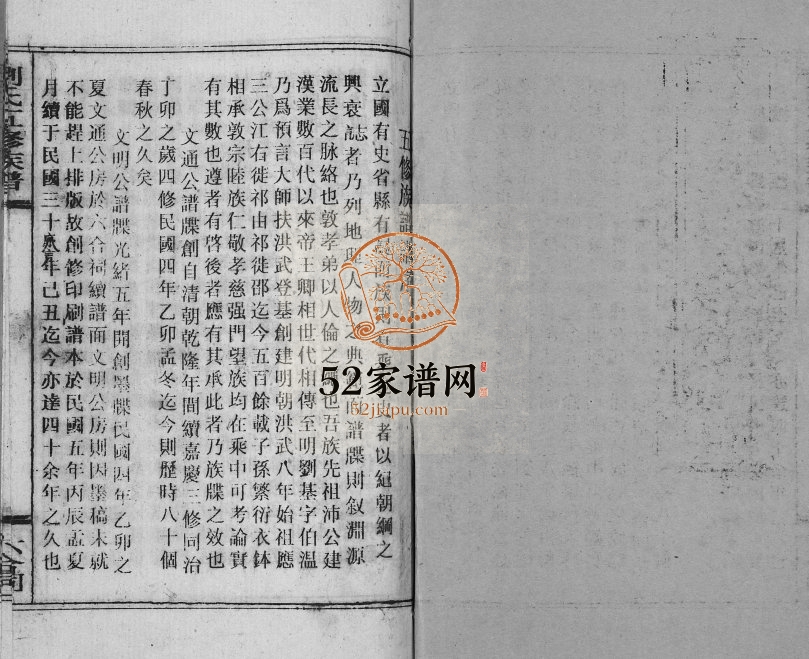 五修族譜
立國有史省縣有 者以紀朝綱之
興衰誌者乃列地 人物之典 譜牒則叙淵源
流長之脉絡也敦孝弟以人倫之 也吾族先祖沛公建
漢業數百代以來帝王卿相世代相傳至明劉基字伯溫
乃爲預言大師扶洪武登基創建明朝洪武八年始祖應
三公江右徙祁由祁徙邵迄今五百餘載子孫繁衍衣鉢
相承敦宗睦族仁敬孝慈强門望族均在乘中可考論實
有其數也遵者有啓後者應有其承此者乃族牒之效也
文通公譜牒創自清朝乾隆年間續嘉慶三修同治
丁卯之歲四修民國四年乙卯孟冬迄今則歷時八十個
春秋之久矣
文明公譜牒光緒五年開創墨牒民國四年乙卯之
夏文通公房於六合祠續譜而文明公房則因墨稿未就
不能趕上排版故創修印刷譜本於民國五年丙辰孟夏
月續于民國三十 年己丑迄今亦達四十余年之久也
劉氏五修族譜
六合祠
52家谱网
52jiapu.com